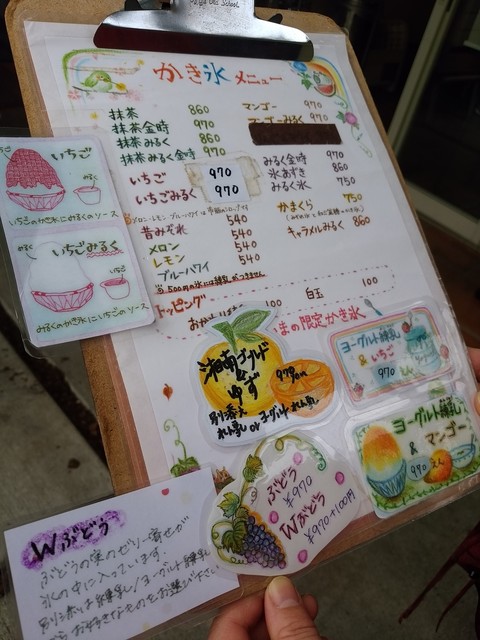 かき氷 メニュー
抹茶 860
抹茶金時 970
抹茶みるく 860
抹茶みるく金時 970
いちご 970
いちごみるく 970
昔みぞれ 540
メロン 540
レモン 540
ブルーハワイ 540
マンゴー 970
みるく金時 970
氷あずき 860
みるく氷 750
かまくら 750
キャラメルみるく 860
トッピング
100
白玉 100
いまの限定かき氷
湘南ゴールド
&
ゆず
970yen
別添え
れん乳 or ヨーグルトれん乳
ヨーグルト練乳
& いちご
970
ヨーグルト練乳
&
マンゴー
970
ぶどう
¥970
Wぶどう
¥970+100円
いちご
いちごのかき氷にみるくのソース
いちごみるく
みるく
いちご
みるくのかき氷にいちごのソース
Wぶどう
ぶどうの実のゼリー寄せが
氷の中に入っています。
別添えは練乳/ヨーグルト練乳
から お好きなものをお選び下さい